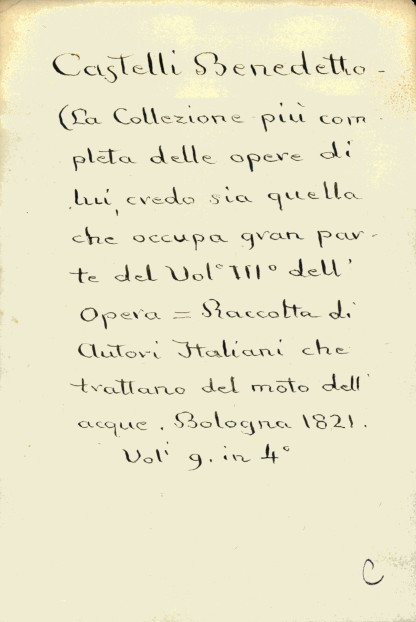 Castelli Benedetto -
(La Collezione più com
pleta delle opere di
lui, credo sia quella
che occupa gran par-
te del Vol° III° dell'
Opera = Raccolta di
Autori Italiani che
trattano del moto dell'
acque. Bologna 1821.
Voli 9. in 4°
C